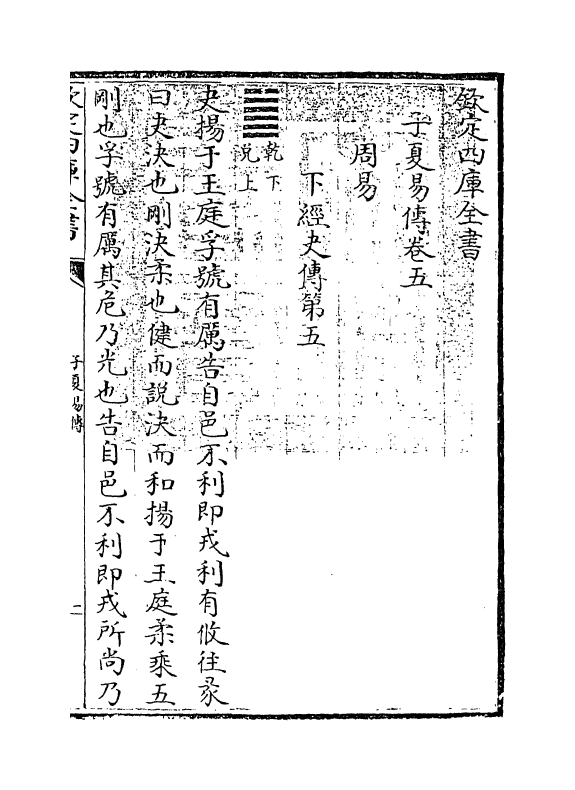 欽定四庫全書
子夏易傳卷五
周易
下經夬傳第五
乾下
兌上
夬揚于王庭孚號有厲告自邑不利即戎利有攸往彖
曰夬決也剛決柔也健而說決而和揚于王庭柔乘五
剛也孚號有厲其危乃光也告自邑不利即戎所尚乃
子夏易傳